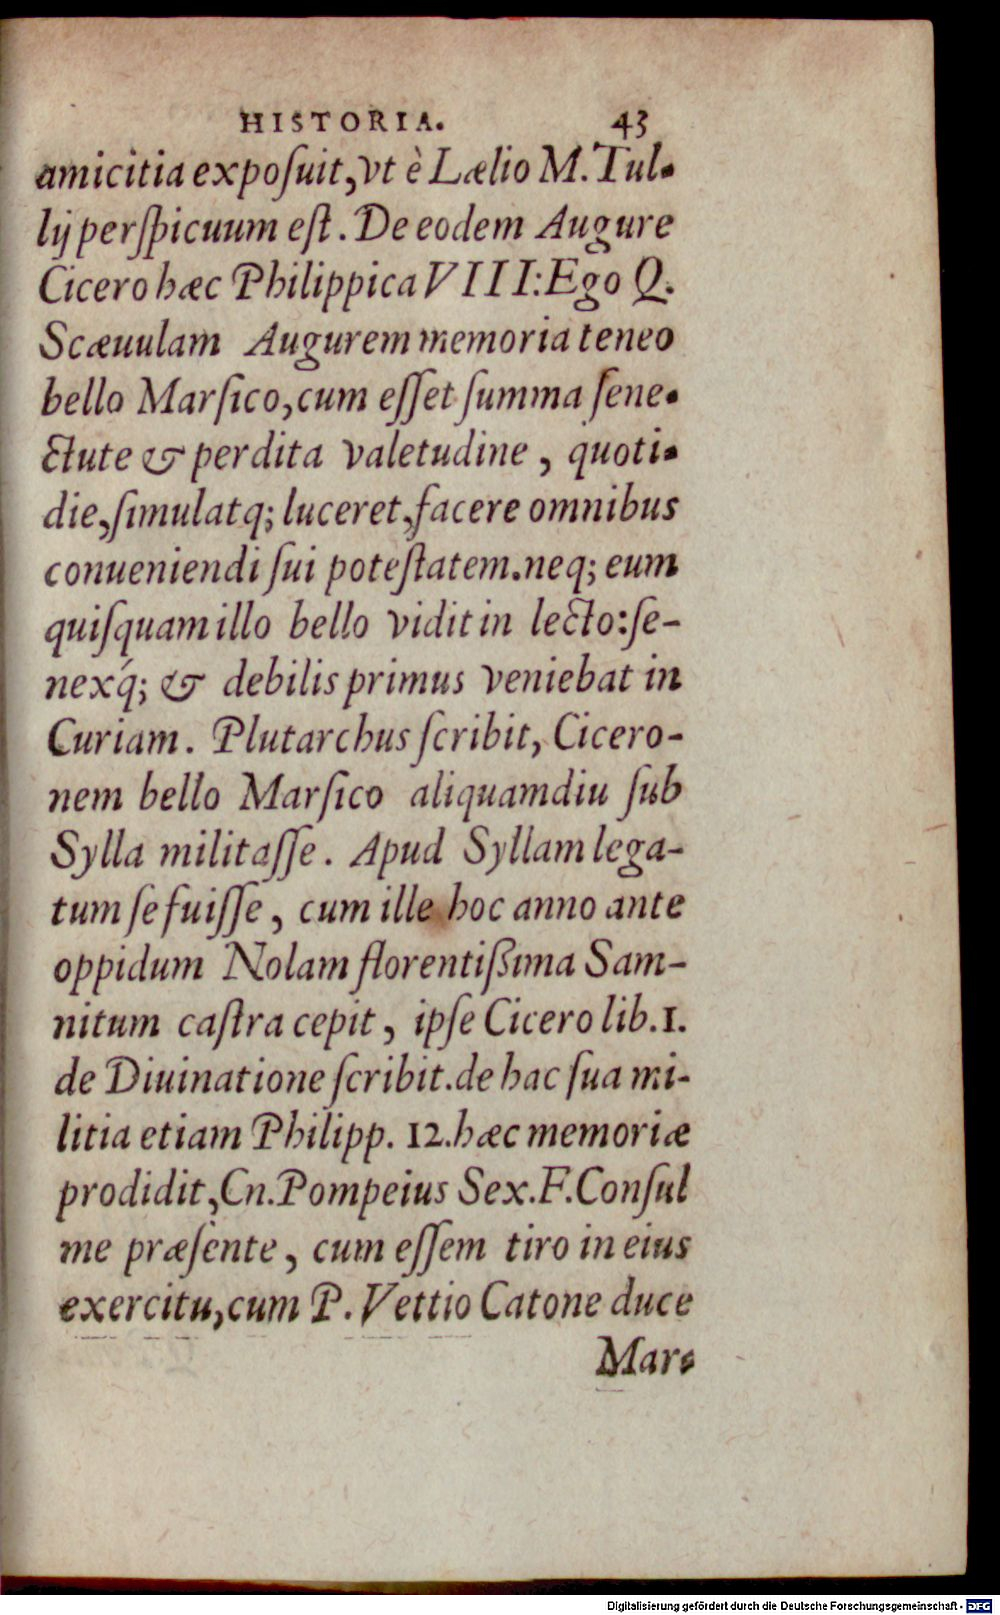 HISTORIA. 43
amicitia exposuit, vt è Lælio M. Tul-
lij perspicuum est. De eodem Augure
Cicero hæc Philippica VIII: Ego Q.
Scæuulam Augurem memoria teneo
bello Marsico, cum esset summa sene-
ctute & perdita valetudine, quoti-
die, simulatq; luceret, facere omnibus
conueniendi sui potestatem. neq; eum
quisquam illo bello vidit in lecto: se-
nexq́; & debilis primus veniebat in
Curiam. Plutarchus scribit, Cicero-
nem bello Marsico aliquamdiu sub
Sylla militasse. Apud Syllam lega-
tum se fuisse, cum ille hoc anno ante
oppidum Nolam florentißima Sam-
nitum castra cepit, ipse Cicero lib. 1.
de Diuinatione scribit. de hac sua mi-
litia etiam Philipp. 12. hæc memoriæ
prodidit, Cn. Pompeius Sex. F. Consul
me præsente, cum essem tiro in eius
exercitu, cum P. Vettio Catone duce
Mar-
Digitalisierung gefördert durch die Deutsche Forschungsgemeinschaft - DFG